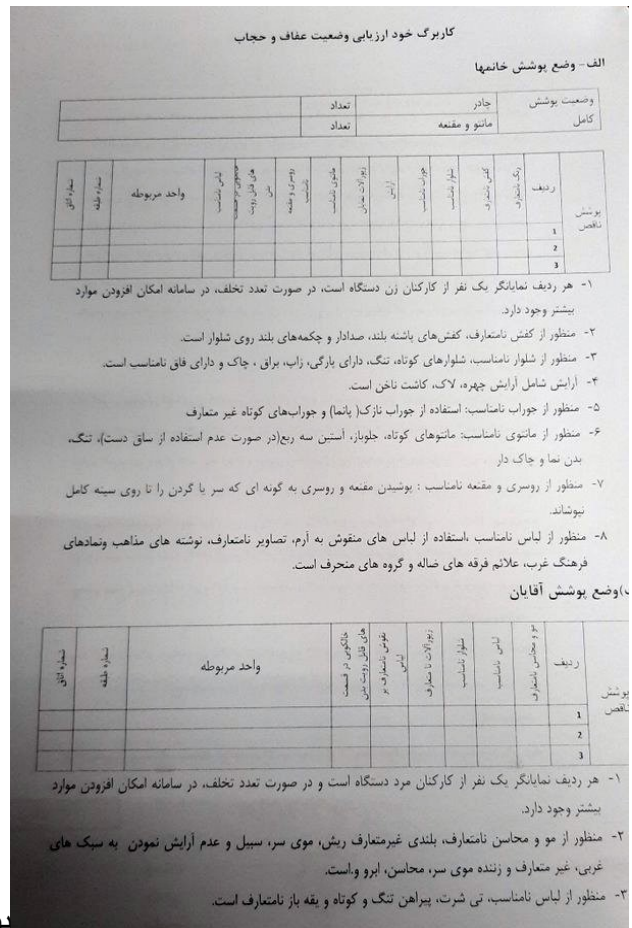 کاربرگ خود ارزیابی وضعیت عفاف و حجاب
الف- وضع پوشش خانمها
وضعیت پوشش کامل
چادر
تعداد
مانتو و مقنعه
تعداد
پوشش ناقص
ردیف
رنگ نامتعارف
کفش نامتعارف
شلوار نامناسب
جوراب نامناسب
آرایش
زیورآلات نمایان
مانتوی نامناسب
روسری و مقنعه نامناسب
های قابل رویت بدن
لباس نامناسب
واحد مربوطه
شماره طبقه
شماره اتاق
1
2
3
۱- هر ردیف نمایانگر یک نفر از کارکنان زن دستگاه است، در صورت تعدد تخلف، در سامانه امکان افزودن موارد
بیشتر وجود دارد.
۲- منظور از کفش نامتعارف، کفش‌های پاشنه بلند، صدادار و چکمه‌های بلند روی شلوار است.
۳- منظور از شلوار نامناسب، شلوارهای کوتاه، تنگ، دارای پارگی، زاپ، براق ، چاک و دارای فاق نامناسب است.
۴- آرایش شامل آرایش چهره، لاک، کاشت ناخن است.
۵- منظور از جوراب نامناسب: استفاده از جوراب نازک( پانما) و جوراب‌های کوتاه غیر متعارف
۶- منظور از مانتوی نامناسب: مانتوهای کوتاه، جلوباز، آستین سه ربع(در صورت عدم استفاده از ساق دست)، تنگ،
بدن نما و چاک دار
۷- منظور از روسری و مقنعه نامناسب : پوشیدن مقنعه و روسری به گونه ای که سر یا گردن را تا روی سینه کامل
نپوشاند.
۸- منظور از لباس نامناسب ،استفاده از لباس های منقوش به آرم، تصاویر نامتعارف، نوشته های مذاهب ونمادهای
فرهنگ غرب، علائم فرقه های ضاله و گروه های منحرف است.
)وضع پوشش آقایان
پوشش ناقص
ردیف
مو و محاسن نامتعارف
لباس نامناسب
شلوار نامناسب
زیورآلات نا متعارف
نقوش نامتعارف بر لباس
خالکوبی در قسمت های قابل رویت بدن
واحد مربوطه
شماره طبقه
شماره اتاق
1
2
3
۱- هر ردیف نمایانگر یک نفر از کارکنان مرد دستگاه است و در صورت تعدد تخلف، در سامانه امکان افزودن موارد
بیشتر وجود دارد.
۲- منظور از مو و محاسن نامتعارف، بلندی غیرمتعارف ریش، موی سر، سبیل و عدم آرایش نمودن به سبک های
غربی، غیر متعارف و زننده موی سر، محاسن، ابرو و.است.
۳- منظور از لباس نامناسب، تی شرت، پیراهن تنگ و کوتاه و یقه باز نامتعارف است.